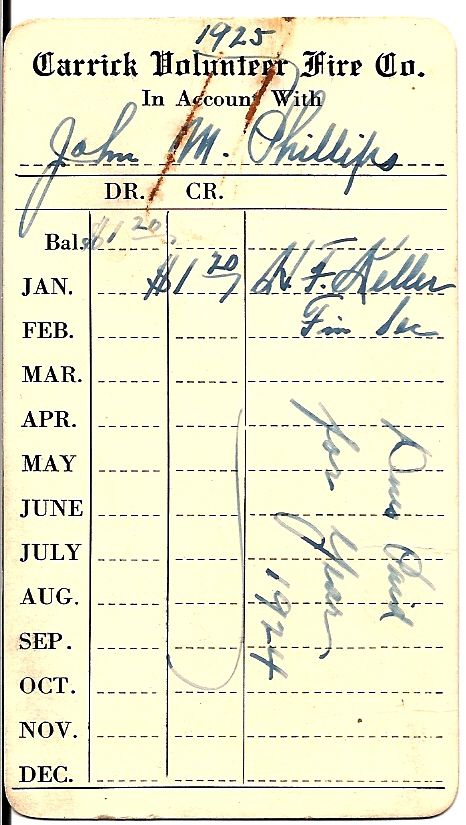 1925
Carrick Volunteer Fire Co.
In Account With
John M. Phillips
DR. CR.
Bal. $1 20
JAN. $1 20 H. F. Keller
FEB. Fin Sec
MAR.
APR.
MAY
JUNE
JULY
AUG.
SEP.
OCT.
NOV.
DEC.
Dues Paid
for Year
1924